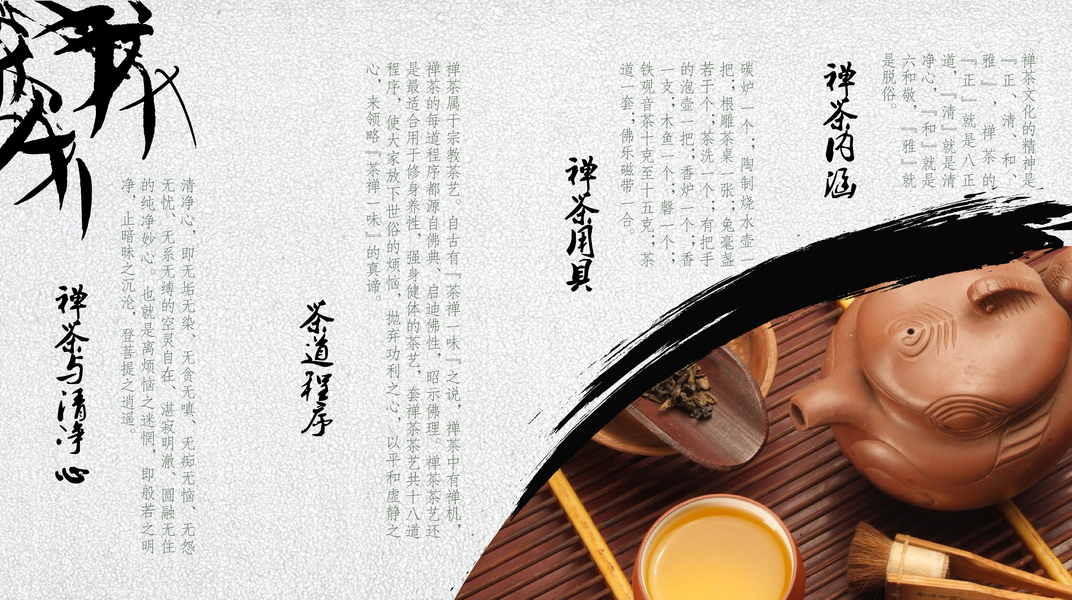 禅茶内涵
禅茶文化的精神是
『正、清、和、
雅』，禅茶的
『正』就是八正
道，『清』就是清
净心，『和』就是
六和敬，『雅』就
是脱俗。
禅茶用具
碳炉一个；陶制烧水壶一
把；根雕茶桌一张；兔毫盏
若干个；茶洗一个；有把手
的泡壶一把；香炉一个；香
一支；木鱼一个；磬一个；
铁观音茶十克至十五克；茶
道一套；佛乐磁带一合。
茶道程序
禅茶属于宗教茶艺。自古有『茶禅一味』之说，禅茶中有禅机，
禅茶的每道程序都源自佛典、启迪佛性，昭示佛理。禅茶茶艺还
是最适合用于修身养性，强身健体的茶艺，套禅茶茶艺共十八道
程序，使大家放下世俗的烦恼，抛弃功利之心，以平和虚静之
心，来领略『茶禅一味』的真谛。
禅茶与清净心
清净心，即无垢无染、无贪无嗔、无痴无恼、无怨
无忧、无系无缚的空灵自在、湛寂明澈、圆融无住
的纯净妙心。也就是离烦恼之迷惘，即般若之明
净，止暗昧之沉沦，登菩提之逍遥。